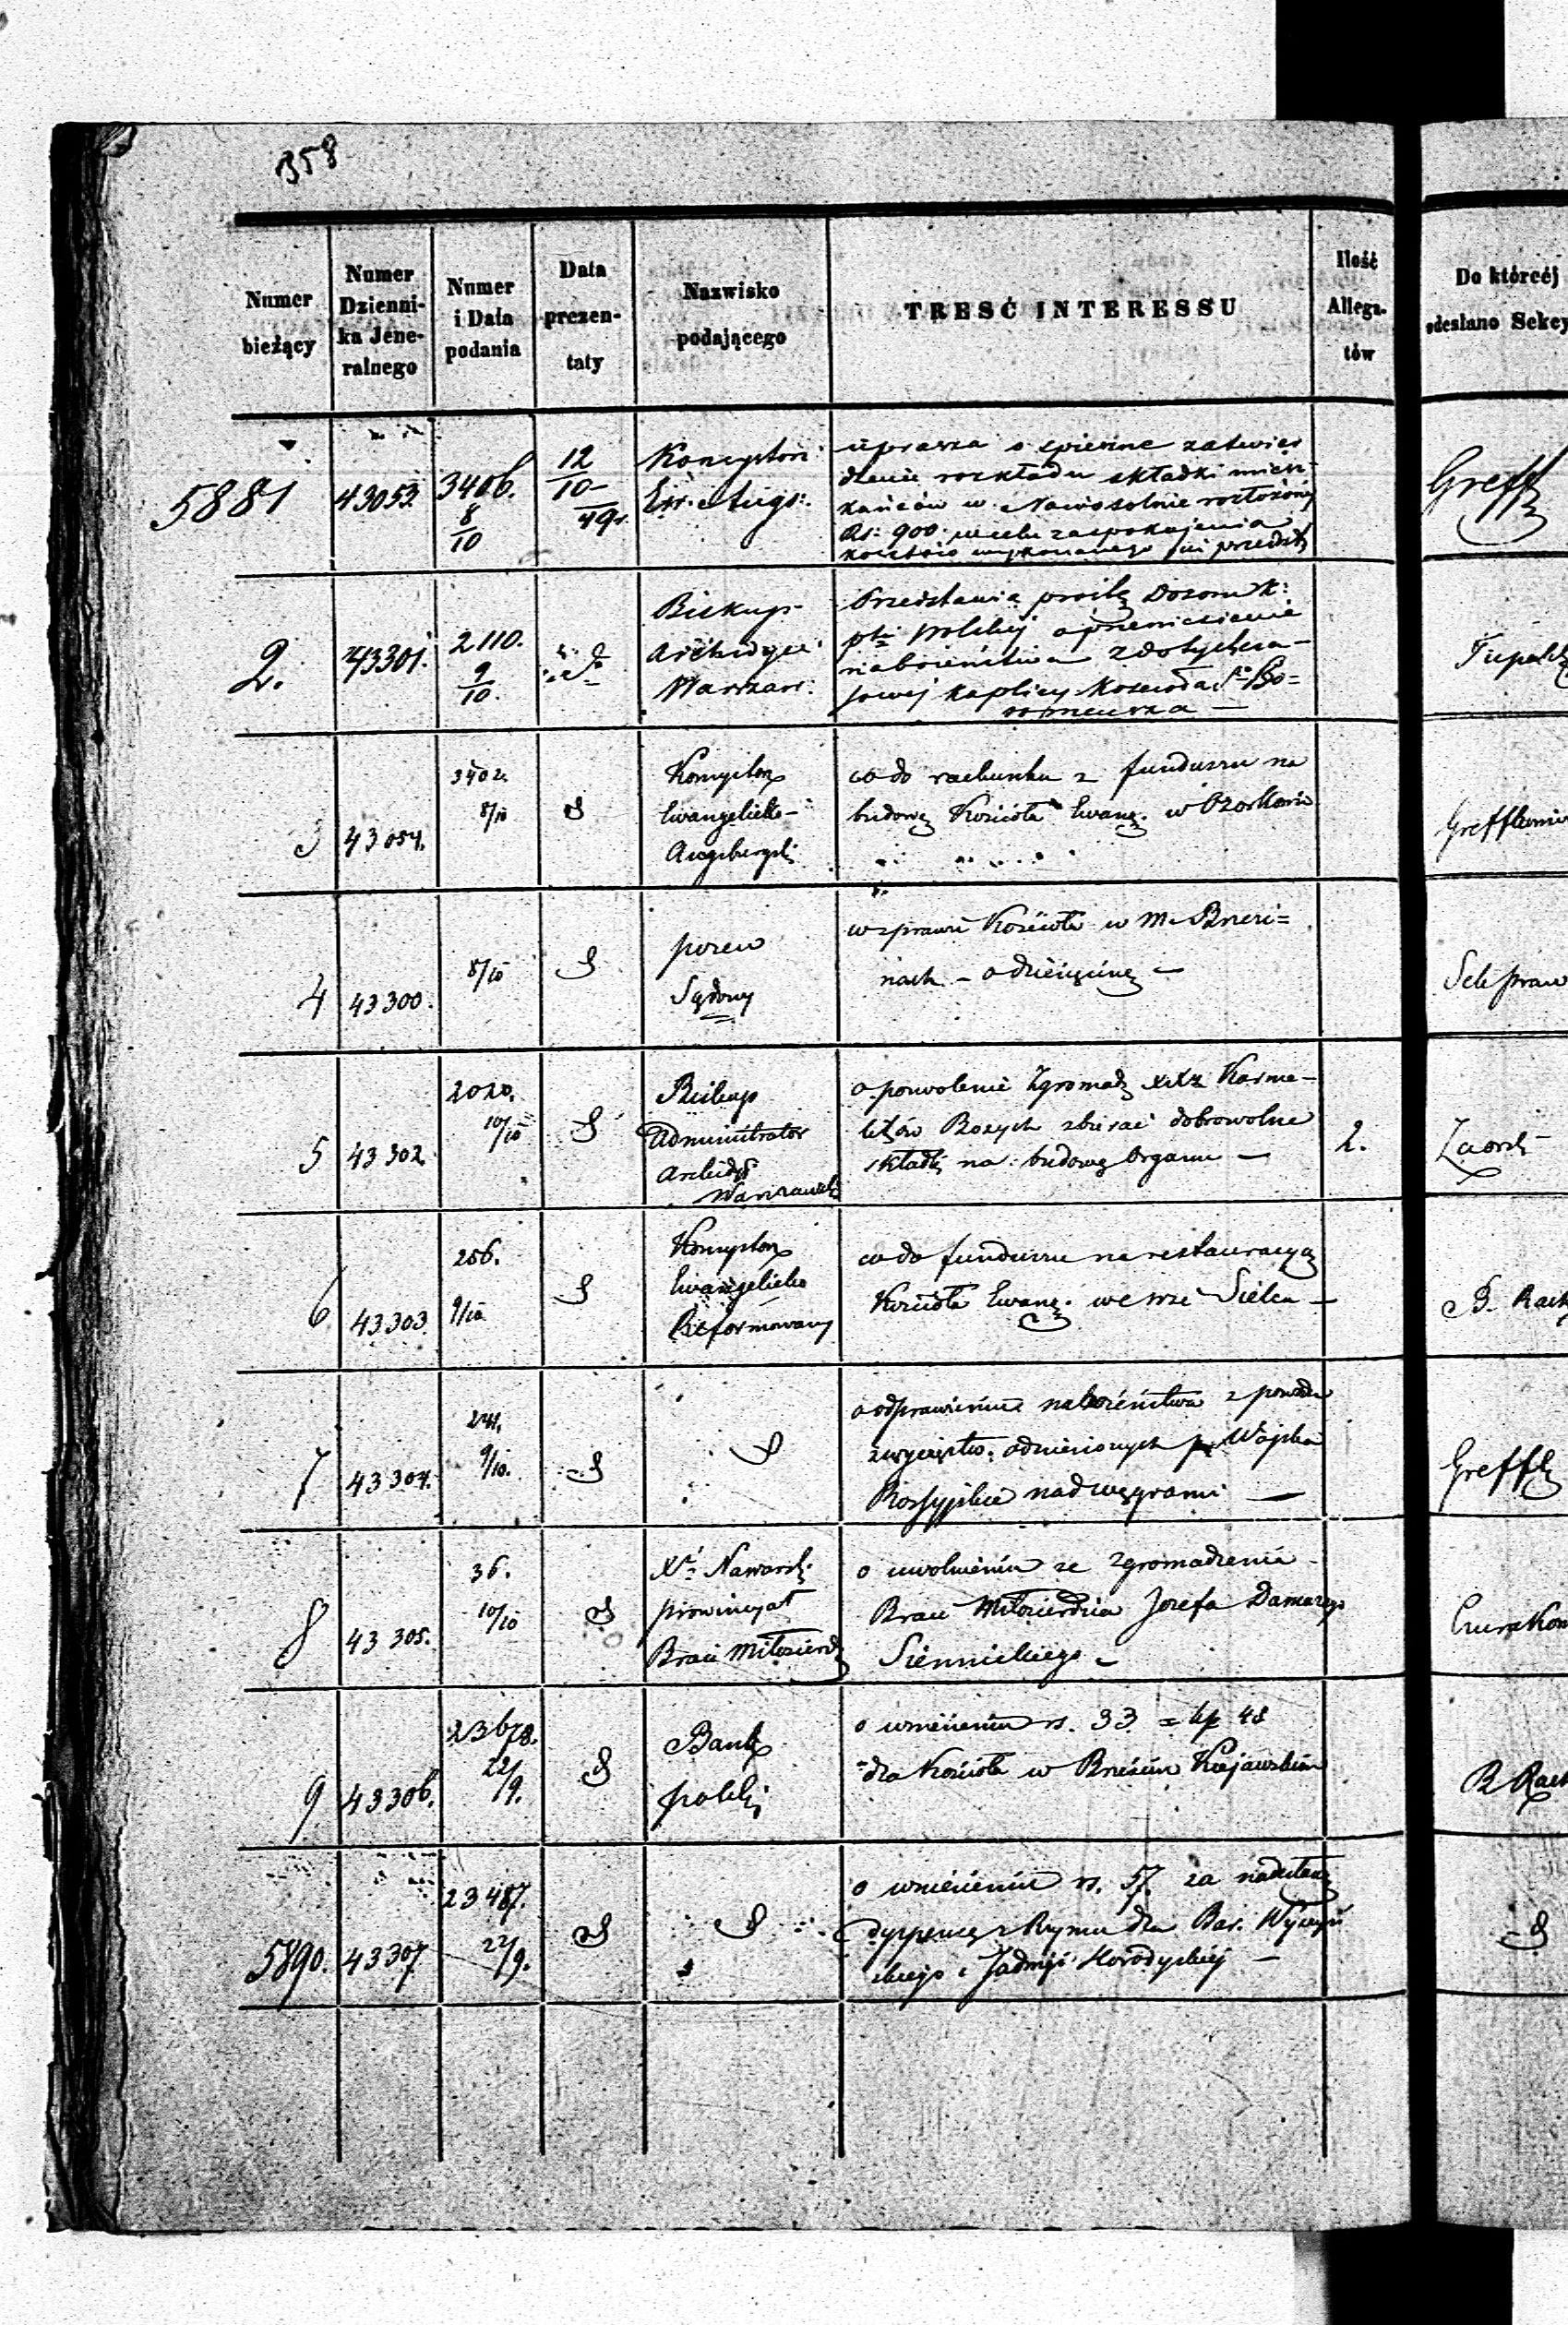 358
Numer bieżący
Numer Dziennika Jeneralnego
Numer i Data podania
Data prezentaty
Nazwisko podającego
TREŚĆ INTERESSU
Ilość Allegatów
Do którcéj
odesłano Sekcy
5881 43053. 3406. 8/10 12/10 49r.
Konsystorz
Ew: Augs:
uprasza o spieszne zatwier
dzenie rozkładu składki miesz-
kańców w Nowosolnie rozłożonej
Rs: 900 w celu zaspokojenia
kosztów wykonanego
Greff
2. 43301. 2110. 9/10. d
Biskup
Archidyec
Warszaw:
Przedstawia prośbę Dozoru K:
pti Polskiej o przeniesienie
nabożeństwa z dotychcza-
sowej kaplicy Kościoła Sgo Bo=
romeusza —
3 43054. 3402. 8/10 d
Konsystorz
Ewangelicko-
Augsburgski
co do rachunku z funduszu na
budowę Kościoła Ewang. w Ozorkowie
4 43300. 8/10 d
pozew
Sądowy
w sprawie Kościoła w M. Brzezi=
nach — o dziesięcinę —
5 43302. 2020. 10/10 d
Biskup
Administrator
Archidy
Warszawski
o pozwolenie Zgromadz XXz Karme-
litów Bosych zbierać dobrowolne
składki na budowę Organu —
2.
6 43303. 256. 9/10 d
Konsystorz
Ewangelicko
Reformowany
co do funduszu na restauracyą
Kościoła Ewang. we wsi Sielcu —
B. Rach
7 43304. 241. 9/10. d
d
o odprawieniu nabożeństwa z powodu
zwycięstw: odniesionych prz Wojska
Rossyjskie nad węgrami —
Greff
8 43305. 36. 10/10 d
Xd Nawarsk.
prowincyał
Braci Miłosierdz
o uwolnieniu ze Zgromadzenia
Braci Miłosierdzia Jozefa Damazego
Siennickiego —
9 43306. 23678. 22/9. d
Bank
polski
o wniesieniu rs. 33 = kp 48
dla Kościoła w Brześciu Kujawskim
B Rach
5890. 43307 23487. 22/9. d
d
o wniesieniu rs. 57. za nadesłaną
dyspensę z Rzymu dla Bar.
skiego i Jadwigi Horodyskiej —
d